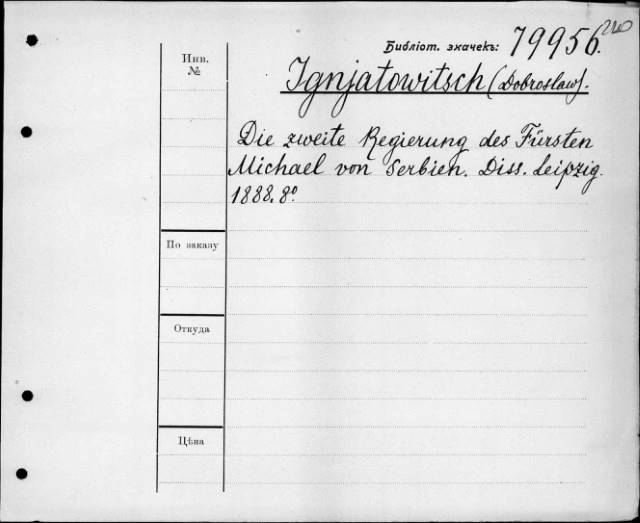 220
Библіот. значекъ: 79956.
Инв.
№
Ignjatowitsch (Dobroslaw).
Die zweite Regierung des Fürsten
Michael von Serbien. Diss. Leipzig.
1888. 8°.
По заказу
Откуда
Цѣна